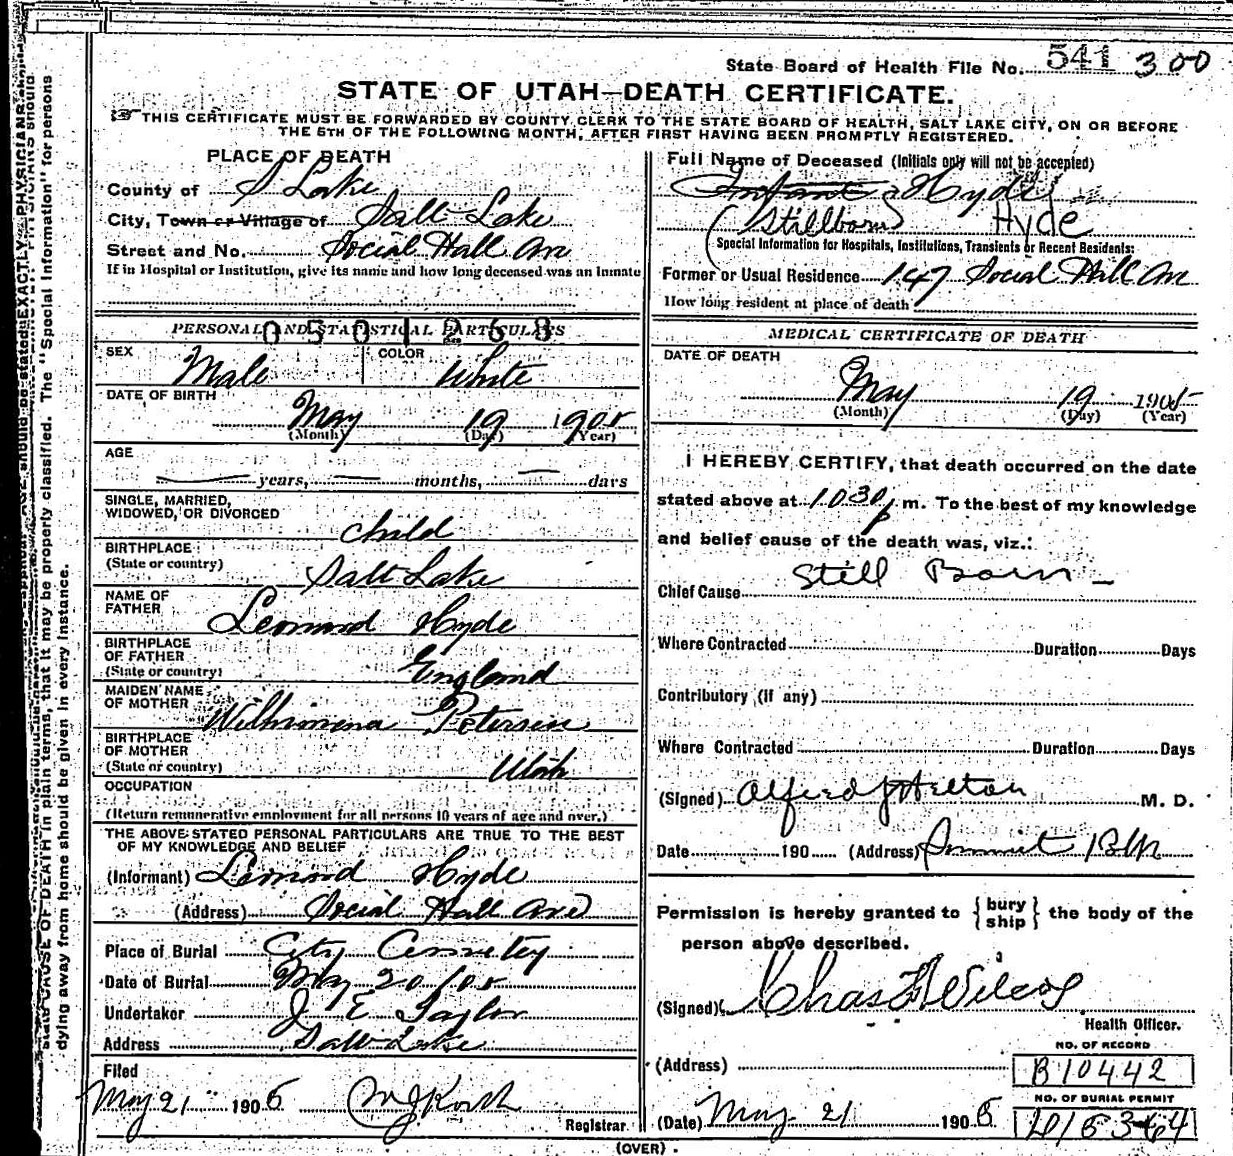 State Board of Health File No. 541 300
STATE OF UTAH—DEATH CERTIFICATE.
THIS CERTIFICATE MUST BE FORWARDED BY COUNTY CLERK TO THE STATE BOARD OF HEALTH, SALT LAKE CITY, ON OR BEFORE
THE 5TH OF THE FOLLOWING MONTH, AFTER FIRST HAVING BEEN PROMPTLY REGISTERED.
PLACE OF DEATH
County of S Lake
City, Town or Village of Salt Lake
Street and No. Social Hall Ave
If in Hospital or Institution, give its name and how long deceased was an inmate
PERSONAL AND STATISTICAL PARTICULARS
0501268
SEX Male COLOR White
DATE OF BIRTH
May 19 1905
(Month) (Day) (Year)
AGE
years, months, days
SINGLE, MARRIED,
WIDOWED, OR DIVORCED
child
BIRTHPLACE
(State or country) Salt Lake
NAME OF
FATHER Leonard Hyde
BIRTHPLACE
OF FATHER
(State or country) England
MAIDEN NAME
OF MOTHER Wilhimina Petersen
BIRTHPLACE
OF MOTHER
(State or country) Utah
OCCUPATION
(Return remunerative employment for all persons 10 years of age and over.)
THE ABOVE STATED PERSONAL PARTICULARS ARE TRUE TO THE BEST
OF MY KNOWLEDGE AND BELIEF
(Informant) Leonard Hyde
(Address) Social Hall Ave
Place of Burial City Cemetey
Date of Burial May 20/05
Undertaker J E Taylor
Address Salt Lake
Filed
May 21 1905
Registrar
Full Name of Deceased (Initials only will not be accepted)
Infant Hyde
(Stillborn) Hyde
Special Information for Hospitals, Institutions, Transients or Recent Residents:
Former or Usual Residence 147 Social Hall Ave
How long resident at place of death
MEDICAL CERTIFICATE OF DEATH
DATE OF DEATH
May 19 1905
(Month) (Day) (Year)
I HEREBY CERTIFY, that death occurred on the date
stated above at 1030 p m. To the best of my knowledge
and belief cause of the death was, viz.:
Chief Cause Still Born
Where Contracted Duration Days
Contributory (if any)
Where Contracted Duration Days
(Signed) Alfred J Helton M. D.
Date 190 (Address)
Permission is hereby granted to {bury ship} the body of the
person above described.
(Signed) Chas F Wilcox
Health Officer.
(Address)
NO. OF RECORD
B10442
NO. OF BURIAL PERMIT
(Date) May 21 1905
(OVER)
CAUSE OF DEATH in plain terms, that it may be properly classified. The "Special Information" for persons
dying away from home should be given in every instance.